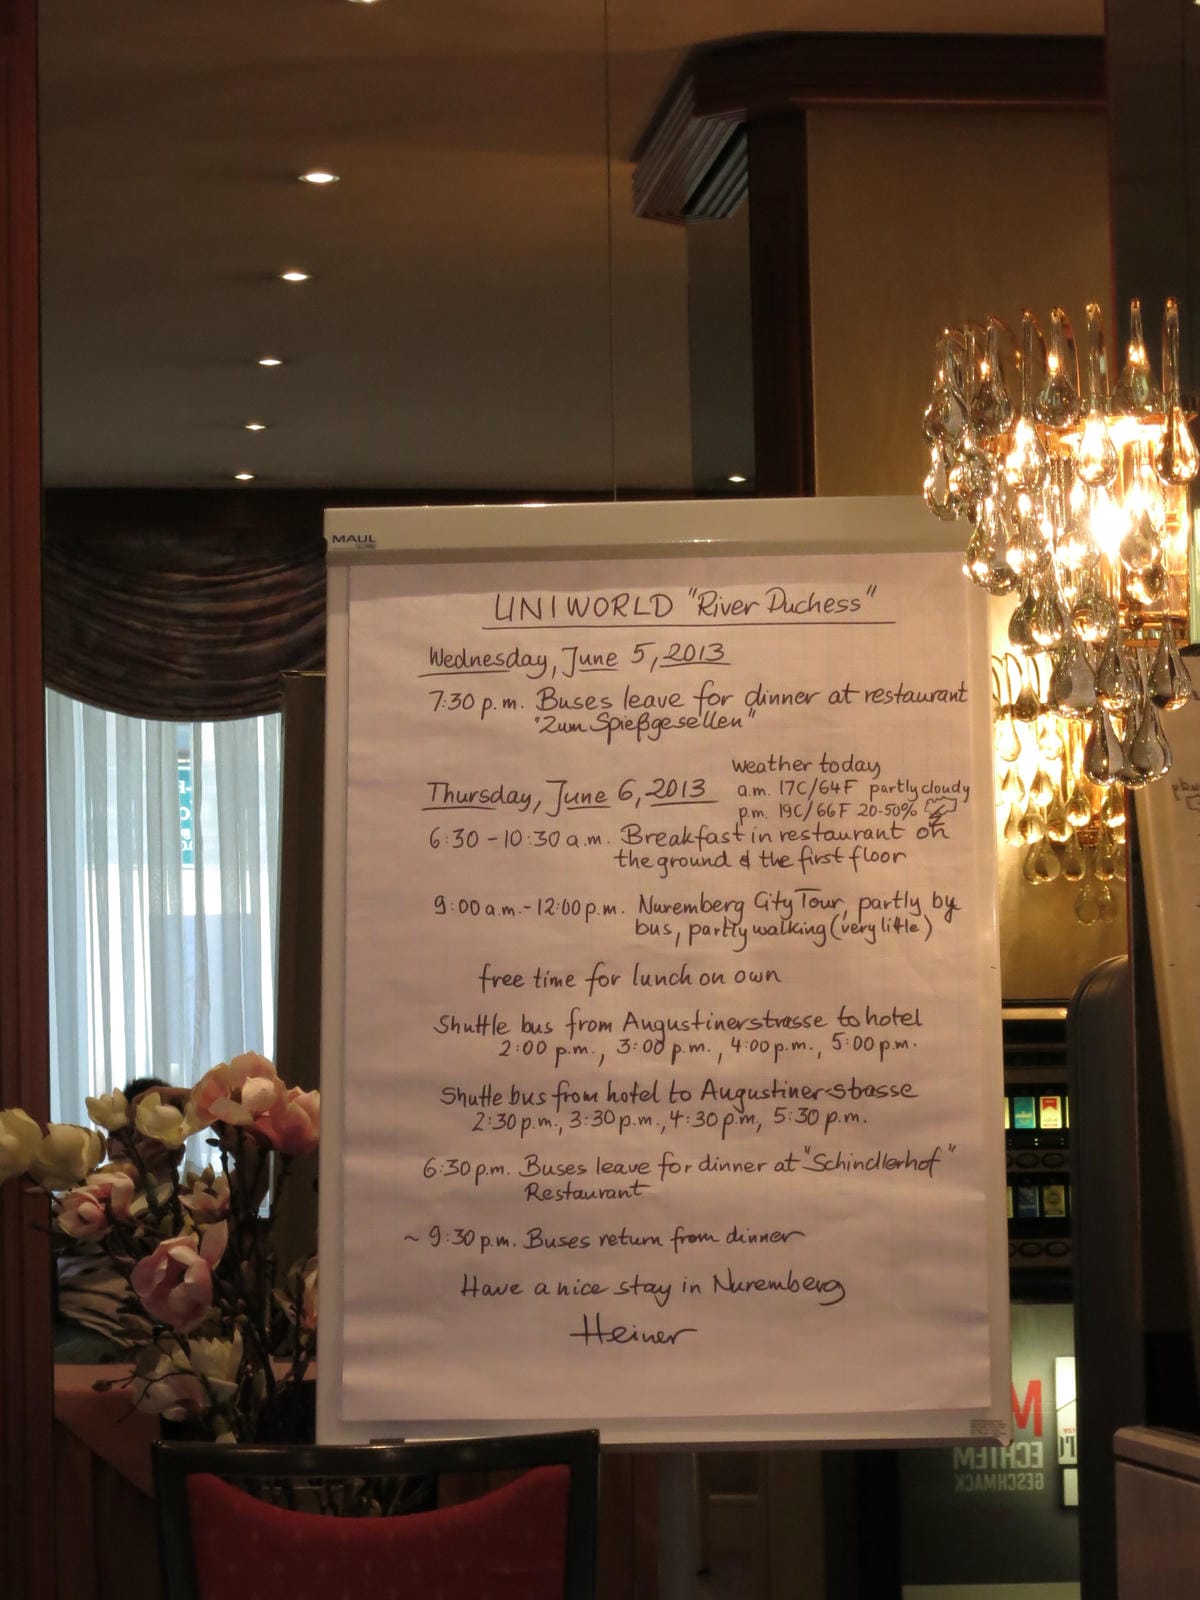 MAUL
UNIWORLD "River Duchess"
Wednesday, June 5, 2013
7:30 p.m. Buses leave for dinner at restaurant
"Zum Spießgesellen"
weather today
a.m. 17C/64F partly cloudy
p.m. 19C/66F 20-50%
Thursday, June 6, 2013
6:30 - 10:30 a.m. Breakfast in restaurant on
the ground & the first floor
9:00 a.m. - 12:00 p.m. Nuremberg City Tour, partly by
bus, partly walking (very little)
free time for lunch on own
Shuttle bus from Augustinerstrasse to hotel
2:00 p.m., 3:00 p.m., 4:00 p.m., 5:00 p.m.
Shuttle bus from hotel to Augustiner-strasse
2:30 p.m., 3:30 p.m., 4:30 p.m, 5:30 p.m.
6:30 p.m. Buses leave for dinner at "Schindlerhof"
Restaurant
~ 9:30 p.m. Buses return from dinner
Have a nice stay in Nuremberg
Heiner
M
ECHTEM
GESCHMACK